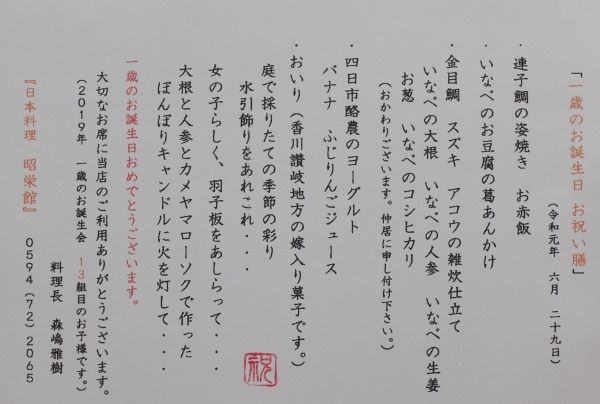 「一歳のお誕生日 お祝い膳」
(令和元年 六月 二十九日)
・連子鯛の姿焼き お赤飯
・いなべのお豆腐の葛あんかけ
・金目鯛 スズキ アコウの雑炊仕立て
いなべの大根 いなべの人参 いなべの生姜
お葱 いなべのコシヒカリ
(おかわりございます。仲居に申し付け下さい。)
・四日市酪農のヨーグルト
バナナ ふじりんごジュース
・おいり(香川讃岐地方の嫁入り菓子です。)
庭で採りたての季節の彩り
水引飾りをあれこれ・・・
女の子らしく、羽子板をあしらって・・・
大根と人参とカメヤマローソクで作った
ぼんぼりキャンドルに火を灯して・・・
一歳のお誕生日おめでとうございます。
大切なお席に当店のご利用ありがとうございます。
(2019年 一歳のお誕生会 13組目のお子様です。)
料理長 森嶋雅樹
『日本料理 昭栄館』 0594(72)2065
祝